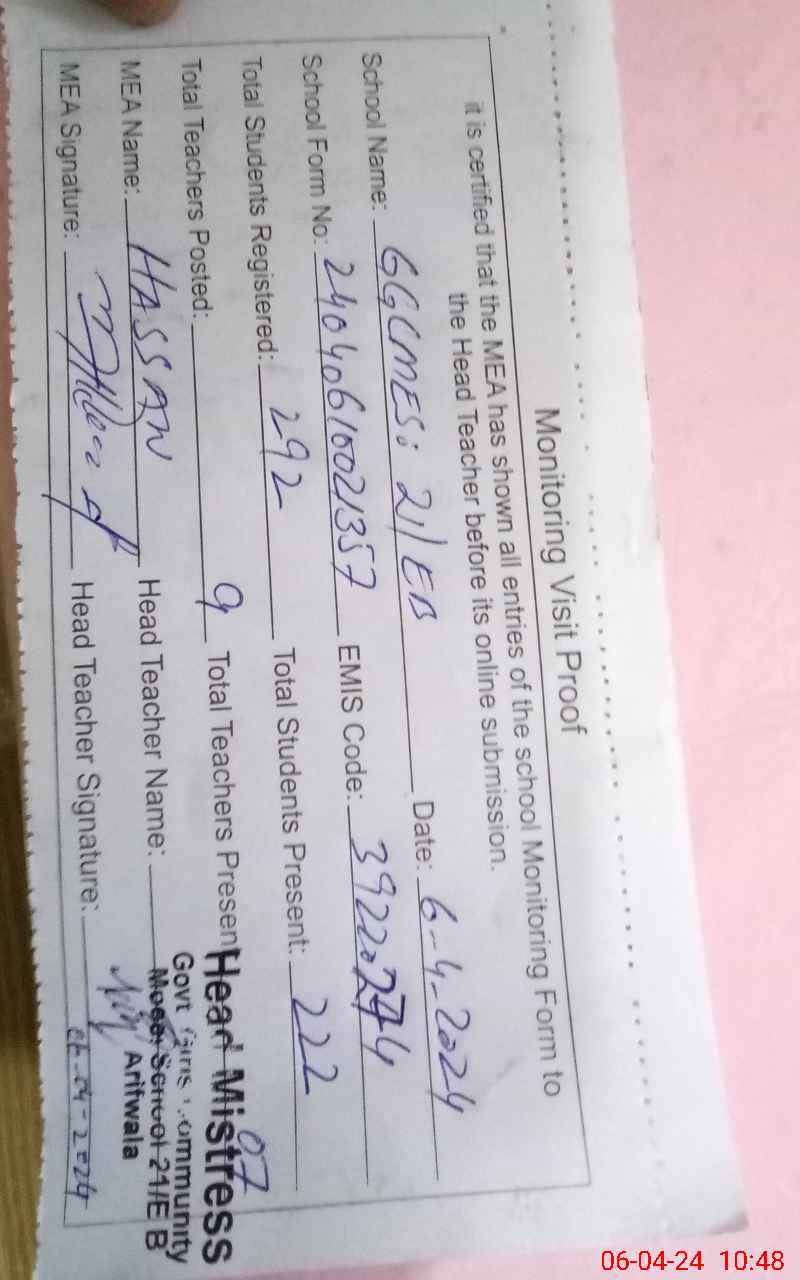 Monitoring Visit Proof
it is certified that the MEA has shown all entries of the school Monitoring Form to
the Head Teacher before its online submission.
School Name: GGCMES: 21/EB Date: 6-4-2024
School Form No: 24040610021357 EMIS Code: 39220274
Total Students Registered: 292 Total Students Present: 222
Total Teachers Posted: 9 Total Teachers Present 07
MEA Name: HASSAN Head Teacher Name:
MEA Signature: Head Teacher Signature: 06-04-2024
Head Mistress
Govt Girls Community
Model School 21/E B
Arifwala
06-04-24 10:48